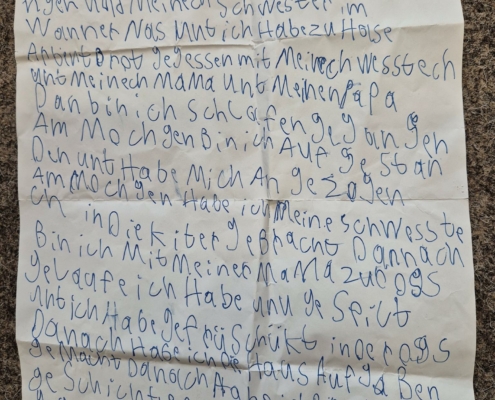 ngen und Meinech Schwester im
Wanner Nas Mut ich Habe zu Hose
Abent Brot gegessen mit Meinech Wesstech
unt Meinech MaMa unt Meinen Papa
Dan bin ich Schlafen gegangen
Am Mochgen Bin ich Auf ge Stan
Den unt Habe Mich An ge zogen
Am Mochgen Habe ich Meine schwesste
ch in Die Kiter geBracht Dannach
Bin ich Mit Meiner MaMa zu Rogs
gelaufe ich Habe unu ge Spilt
unt ich Habe gefrüSchükt in de rogs
Danach Habe ich die Haus Aufga Ben
ge Macht Danach
ge Schicht